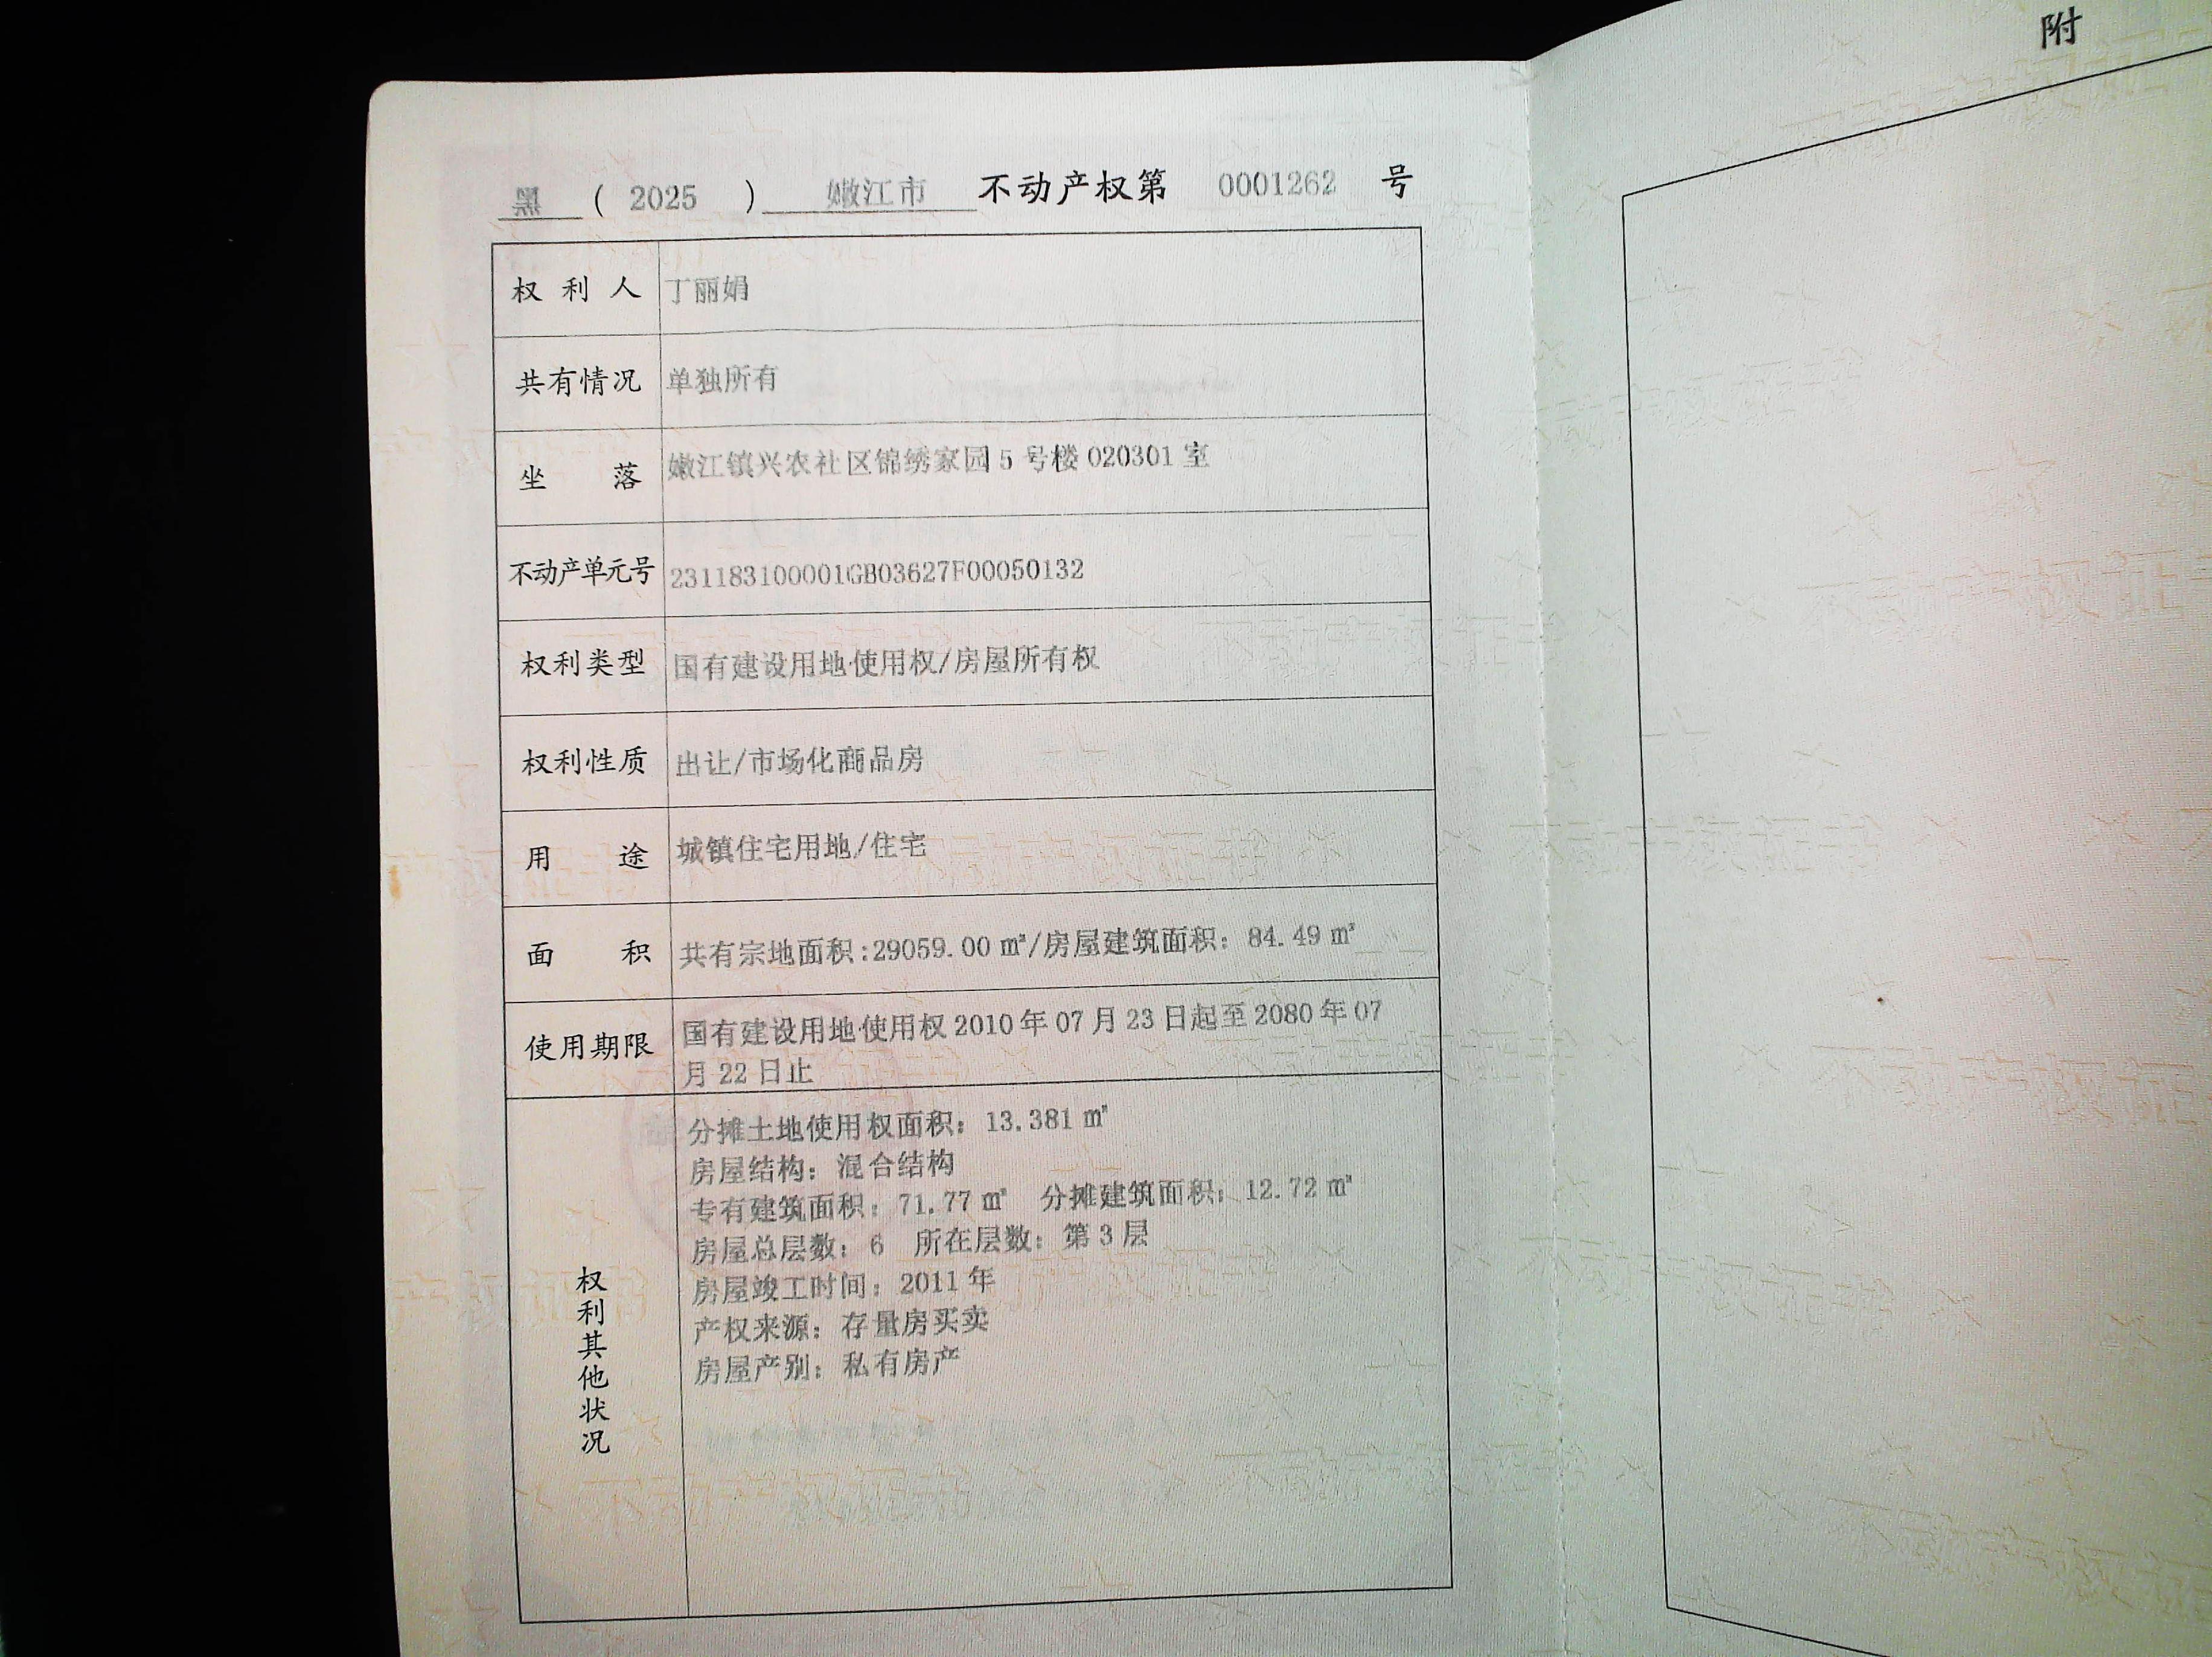 黑 ( 2025 ) 嫩江市 不动产权第 0001262 号
权利人 丁丽娟
共有情况 单独所有
坐落 嫩江镇兴农社区锦绣家园 5 号楼 020301 室
不动产单元号 231183100001GB03627F00050132
权利类型 国有建设用地使用权/房屋所有权
权利性质 出让/市场化商品房
用途 城镇住宅用地/住宅
面积 共有宗地面积:29059.00 ㎡/房屋建筑面积: 84.49 ㎡
使用期限 国有建设用地使用权 2010 年 07 月 23 日起至 2080 年 07
月 22 日止
权利其他状况
分摊土地使用权面积: 13.381 ㎡
房屋结构: 混合结构
专有建筑面积: 71.77 ㎡ 分摊建筑面积: 12.72 ㎡
房屋总层数: 6 所在层数: 第 3 层
房屋竣工时间: 2011 年
产权来源: 存量房买卖
房屋产别: 私有房产
附